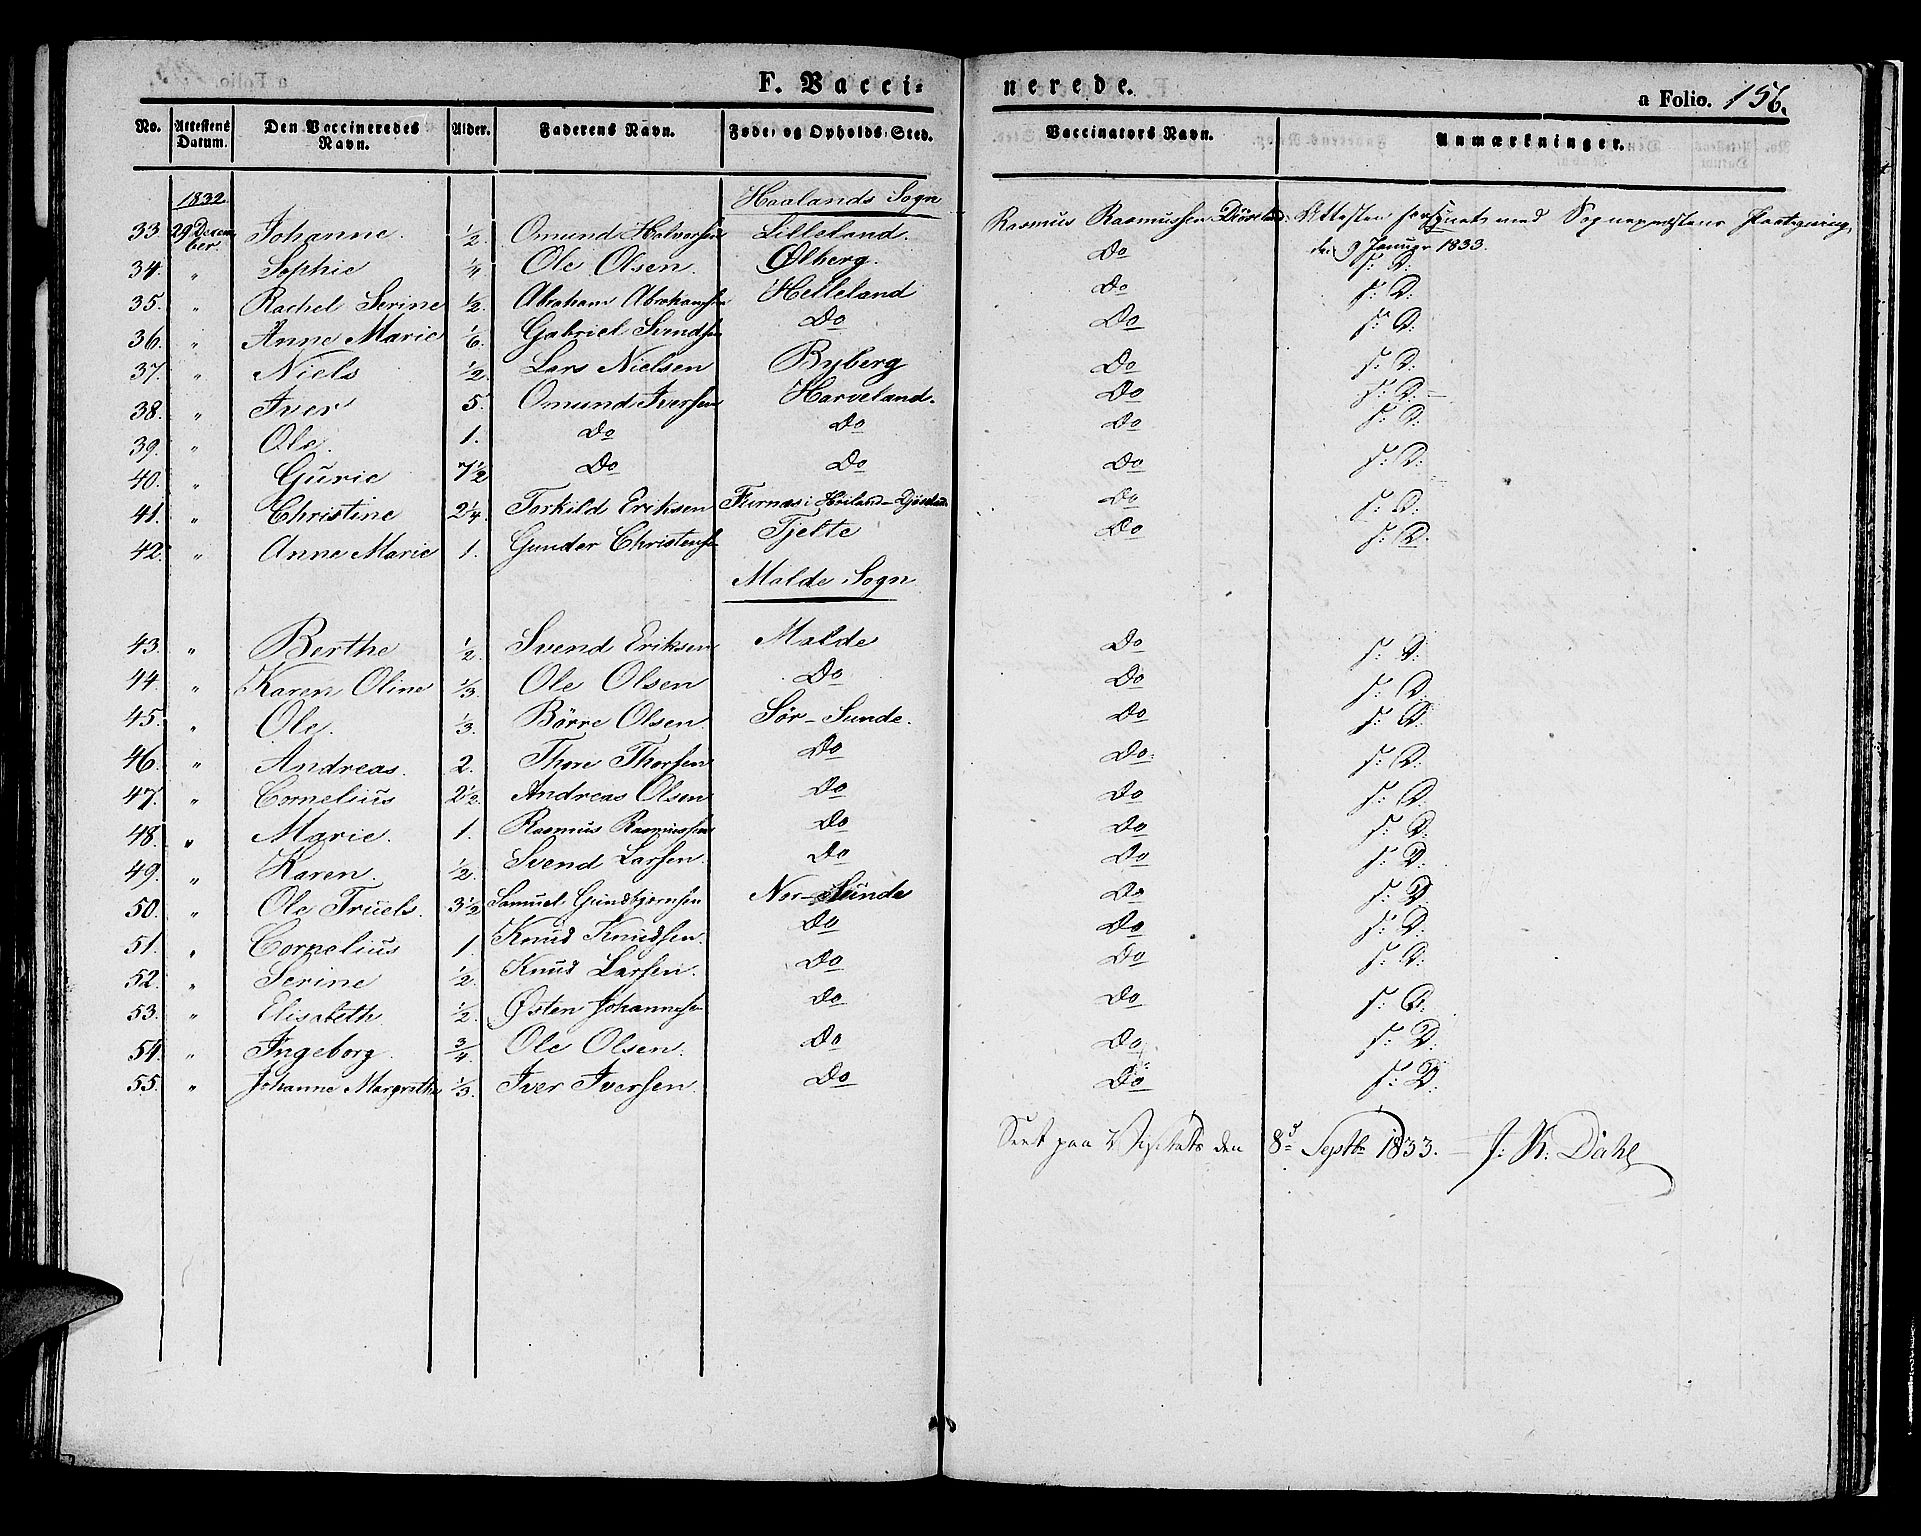 F. Vacci=
nerede.
a Folio. 156.
No. Attestens Datum. Den Vaccineredes Navn. Alder. Faderens Navn. Føde- og Opholds-Sted. Vaccinators Navn. Anmærkninger.
1832. Haalands Sogn
33. 29 Decem ber. Johanne. 1/2. Omund Halversen Lilleland. Rasmus Rasmussen Attesten forsynet med Sognepræstens Paategning
den 9 Januar 1833.
34. " Sophie 1/4 Ole Olsen. Ølberg. Do f: D:
35. " Rachel Serine 1/2. Abraham Abrahamsen Helleland Do f: D:
36. " Anne Marie 1/6. Gabriel Svendsen Do Do f: D:
37. " Niels 1/2. Lars Nielsen Byberg Do f: D:
38. " Iver 5. Omund Iversen Harveland. Do f: D:
39. " Ole. 1. Do Do Do f: D:
40. " Gurie 7 1/2 Do Do Do f: D:
41. " Christine 2 1/4. Torkild Eriksen i Høiland Do f: D:
42. " Anne Marie 1. Gunder Christensen Tjelte Do f: D:
Malde Sogn
43. " Berthe 1/2. Svend Eriksen Malde Do f: D:
44. " Karen Oline 1/3. Ole Olsen Do Do f: D:
45. " Ole. 1/3. Börre Olsen. Sör-Sunde. Do f: D:
46. " Andreas. 2. Thore Thorsen Do Do. f: D:
47. " Cornelius 2 1/2. Andreas Olsen Do Do f: D:
48. " Marie. 1. Rasmus Rasmussen Do Do f: D:
49. " Karen. 1/2. Svend Larsen. Do Do f: D:
50. " Ole Truels. 3 1/2 Samuel Gundbjörnsen Nor-Sunde Do f: D:
51. " Cornelius 1. Knud Knudsen. Do Do f: D:
52. " Serine 1/2. Knud Larsen. Do Do f: D:
53. " Elisabeth 1/2. Østen Johannesen Do Do f: D:
54. " Ingeborg. 3/4. Ole Olsen. Do Do f: D:
55. " Johanne Margrethe 1/3. Iver Iversen. Do Do f: D:
Seet paa Visitats den 8d Septbr 1833. — J: K: Dahl